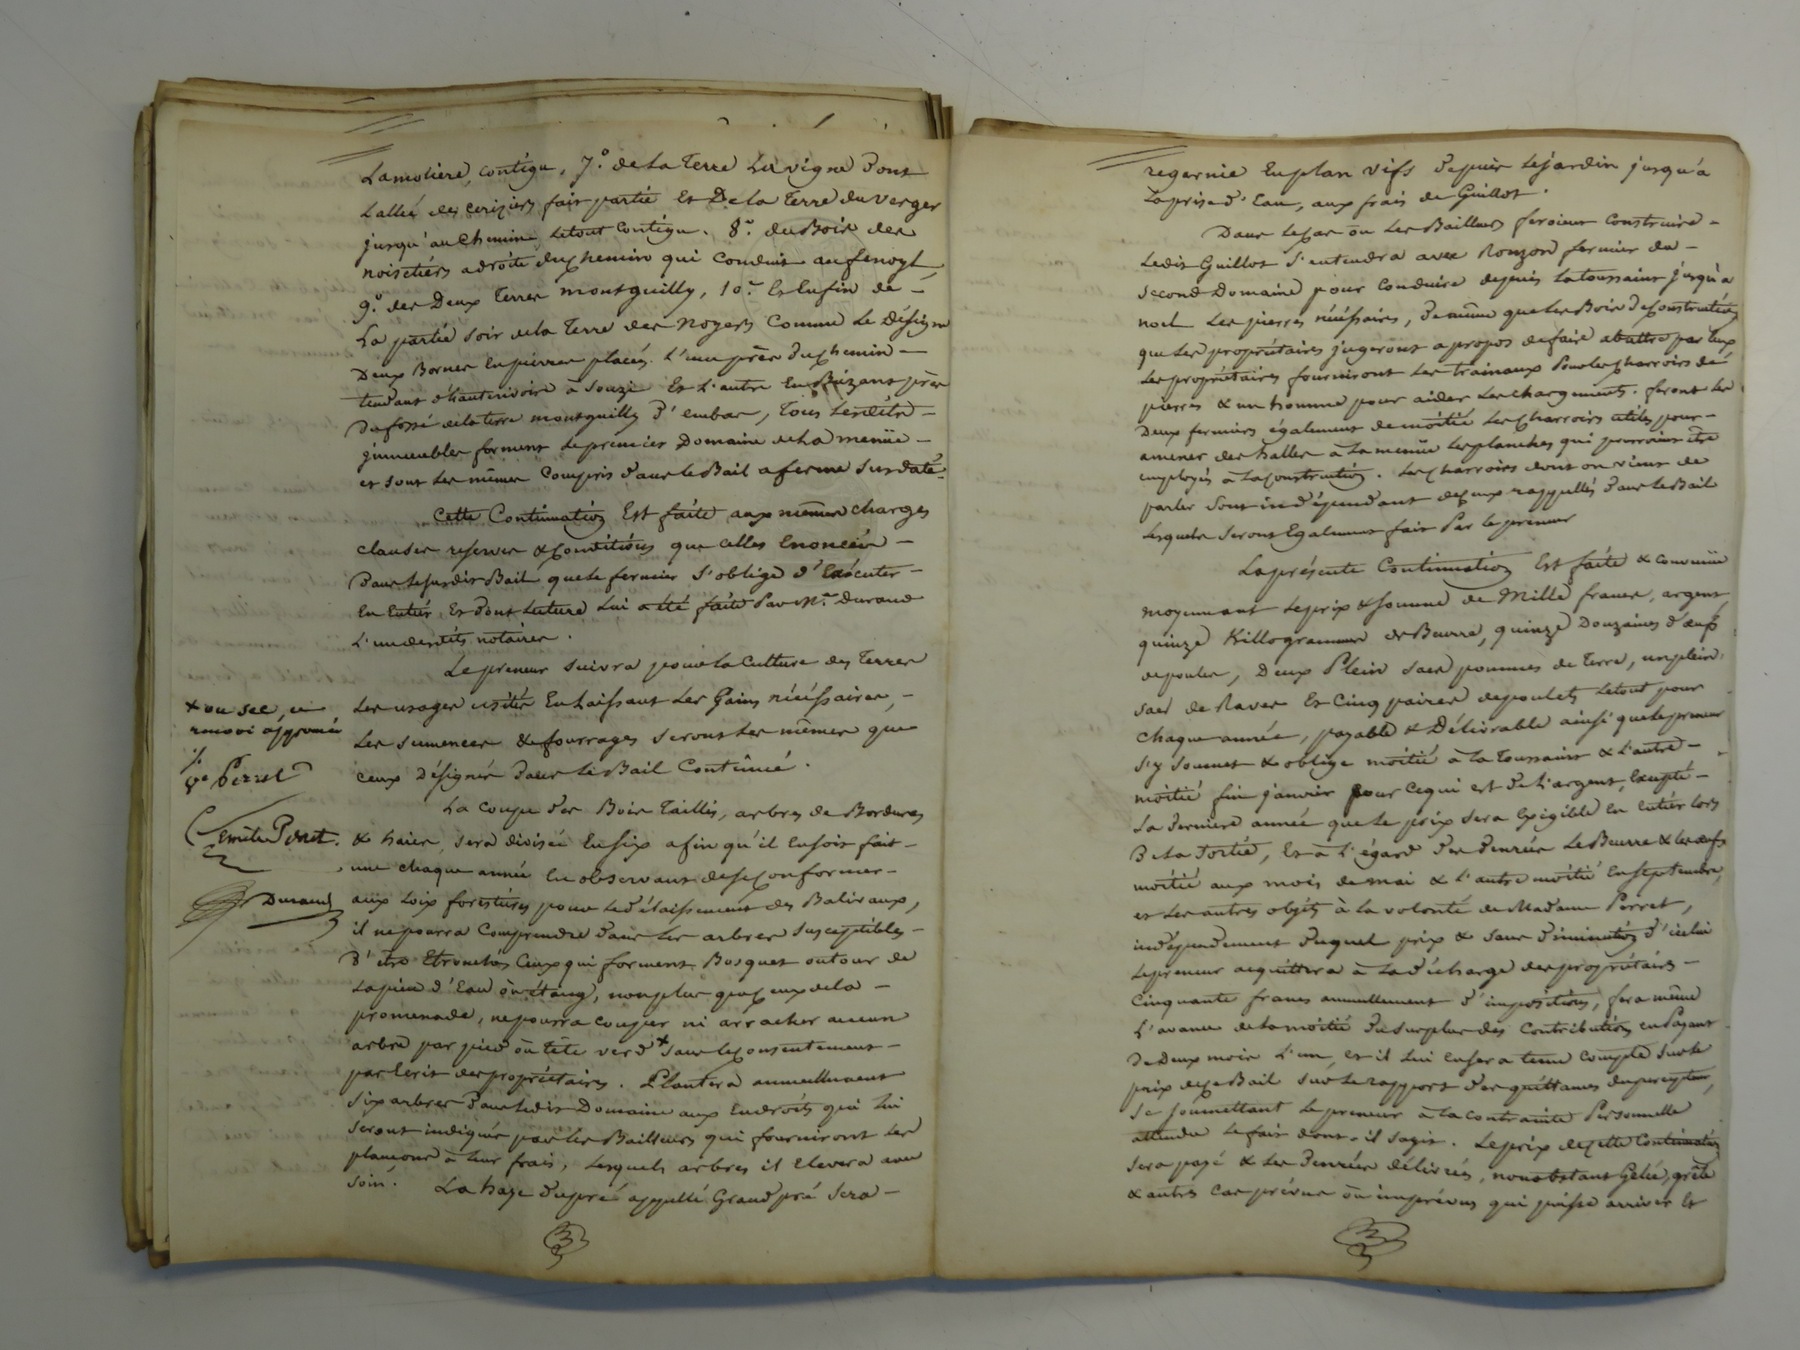 Lamolière, contigu, 7.° de la Terre La vigne dont
L'allée des cerisiers fait partie et De la Terre du verger
jusqu'au Chemin, le tout contigu. 8.° du Bois des
noisetiers a droite du chemin qui conduit au fenoyl,
9.° des Deux Terres montguilly, 10.° Et Enfin de –
La partie soir de la Terre des noyers Comme Le Désigne
Deux Bornes En pierres placées L'une près du chemin –
tendant d'hauterivoire à Souzi Et L'autre
du fossé de la terre montguilly d'embas, Tous lesdits –
jmmeubles forment le premier Domaine de La menüe –
et sont Les mêmes Compris dans le Bail a ferme Susdaté.
Cette Continuation Est faite aux mêmes charges
clauses reserves & conditions que celles Enoncées –
dans le susdit Bail que le fermier S'oblige d'Exécuter –
En Entier Et dont Lecture Lui a été faite Par M.e Durand
L'un desdits notaires.
Le preneur Suivra pour la Culture des Terres
Les usages usités En Laissant Les Gains nécéssaires, –
Les semences & fourrages seront Les mêmes que
ceux Désignés dans Le Bail Continué.
La coupe des Bois Taillis, arbres de Bordures
& haies, sera divisée En six afin qu'il En soit fait –
une chaque année En observant de se Conformer –
aux Loix forestières pour le délaissement des Baliveaux,
il ne pourra Comprendre dans Les arbres susceptibles –
D'être Etronchés Ceux qui forment Bosquet autour de
La pièce d'Eau ou étang, non plus que ceux de la –
promenade, ne pourra couper ni arracher aucun
arbre par pied ou tête verd x sans le Consentement –
par Ecrit des propriétaires. Plantera annuellement
Six arbres dans Ledit Domaine aux Endroits qui Lui
seront indiqués par Les Bailleurs qui fourniront Les
plançons à leur frais, Lesquels arbres il Elevera avec
soin.
La haye du pré appellé Grand pré sera –
x ou sec, ce
renvoi approuvé
v.e Perret
Emile Perret.
Durand
regarnie En plan vifs depuis Le jardin jusqu'à
La prise d'Eau, aux frais de Guillot.
Dans Le cas où Les Bailleurs feroient Construire –
Ledit Guillot S'entendra avec Ronzon fermier du –
second Domaine pour Conduire depuis La toussaint jusqu'à
noël Les pierres nécéssaires, de même que Les Bois de Construction
que Les propriétaires jugeront a propos de faire abattre par Eux
Les propriétaires fourniront Les trainaux Pour Les Charrois de
pierres & un homme pour aider Les chargements. feront Les
Deux fermiers également de moitié Les Charrois utiles pour –
amener des halles à La menüe Les planches qui pourroient être
employés à La Construction. Les Charrois dont on vient de
parler sont indépendant de ceux rappellés dans Le Bail
Lesquels seront Egalement fait Par Le preneur
La présente Continuation Est faite & convenüe
moyennant Le prix & somme de Mille francs, argent,
quinze Killogrammes de Beurre, quinze Douzaines d'œufs
de poules, Deux Plein sacs pommes de Terre, un plein
sac de Raves Et Cinq paires de poulets Le tout pour
chaque année, payable & Délivrable ainsi que le preneur
s'y Soumet & oblige moitié à La Toussaint & L'autre –
moitié fin janvier pour Ce qui est de L'argent, Excepté –
La Derniere année que Le prix sera Exigible En Entier Lors
De La Sortie, Et à L'égard des denrées Le Beurre & Les œufs
moitié aux mois de mai & L'autre moitié En septembre,
et Les autres objets à la volonté de Madame Perret,
indépendement duquel prix & sans diminution d'icelui
Le preneur acquittera à La décharge des propriétaires –
Cinquante francs annuellement d'impositions, fera même
L'avance de La moitié du surplus des Contributions en Payant
De Deux mois L'un, et il Lui En sera tenu Compte sur le
prix de ce Bail sur Le rapport des quittances du percepteur,
se soumettant Le preneur à La contrainte Personnelle
attendu Le fait dont il s'agit. Le prix de cette Continuation
sera payé & Les Denrées délivrées, nonobstant Gelée, grêle
& autres Cas prévus ou imprévus qui puisse arriver Et